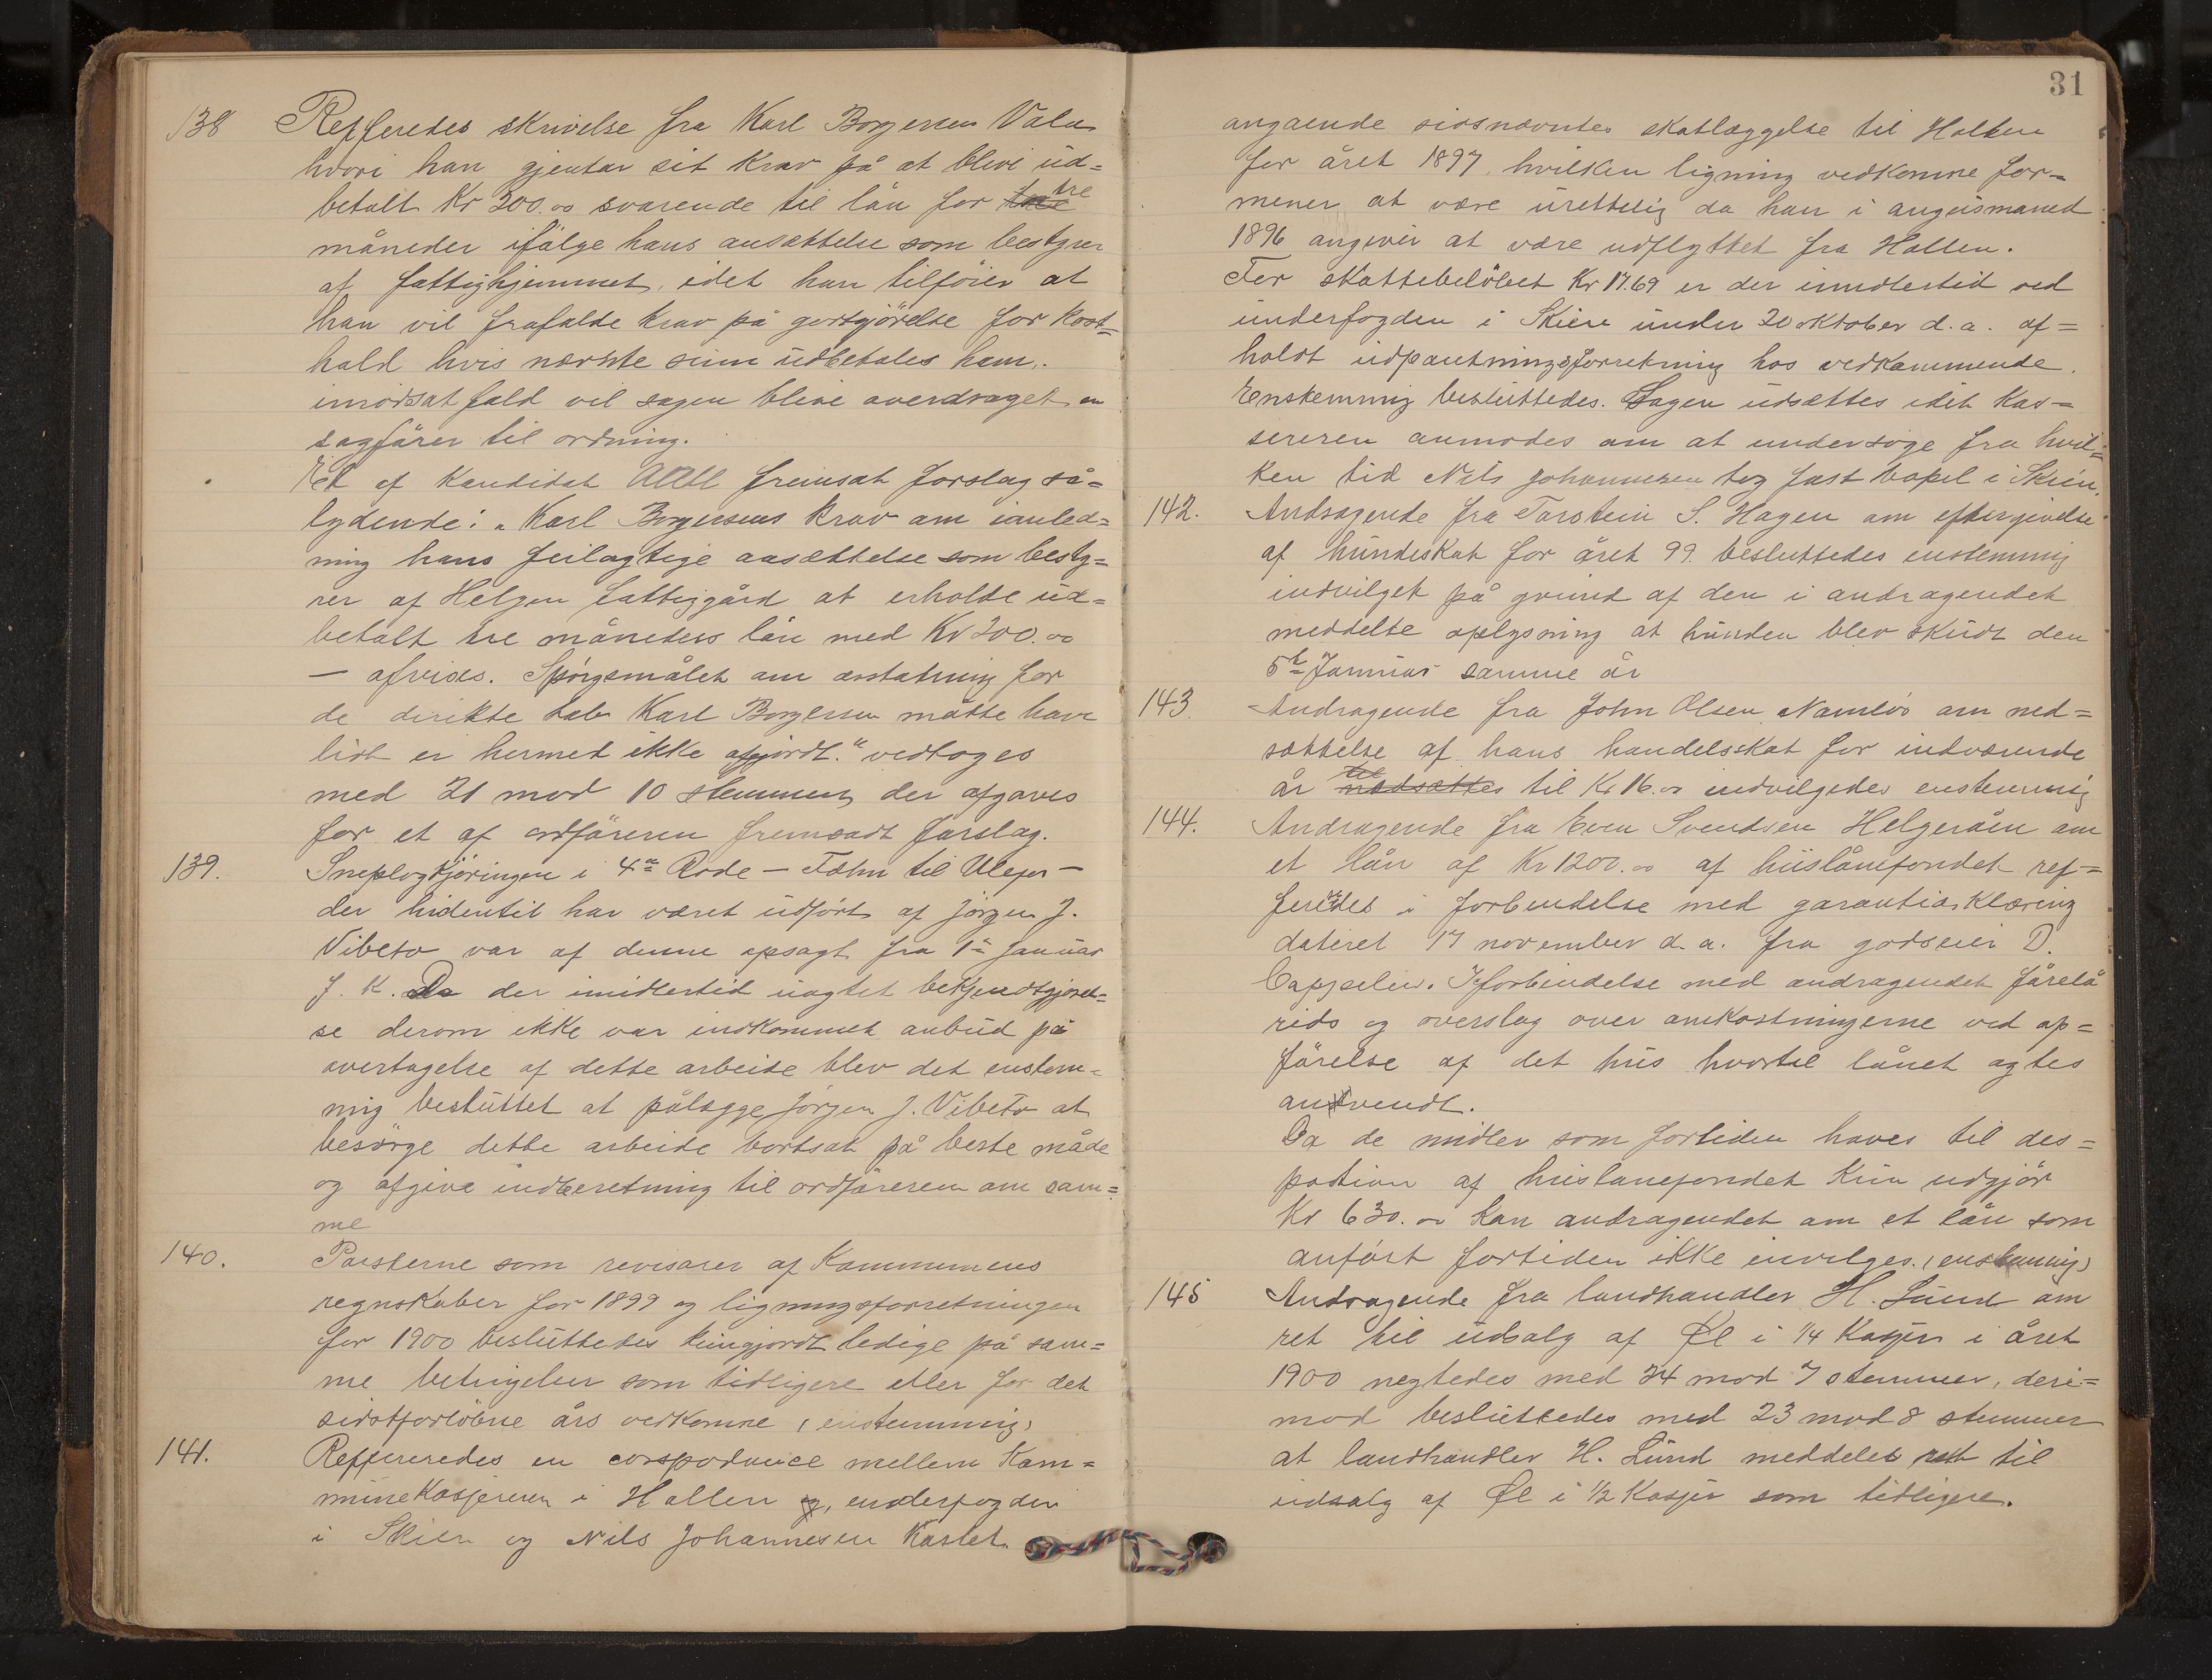 138 Refferedes skrivelse fra Karl Borgersen Vala
hvori han gjentar sit krav på at blive ud=
betalt Kr 200.00 svarende til lån for tre
måneder ifålge hans ansættelse som bestyrer
af fattighjemmet, idet han tilföier at
han vil frafalde krav på godtgjörelse for kost=
hald hvis nævnte sum udbetales ham.
imodsat fald vil sagen blive averdraget en
sagfårer til ordning.
Et af Kandidat Aall fremsat forslag så=
lydende: „Karl Borgersens krav om ianled=
ning hans feilagtige aasættelse som besty=
rer af Helgen fattiggård at erholde ud=
betalt tre måneders lån med Kr 200.00
— afvises. Spörgsmålet am erstatning for
de direkte tab Karl Borgersen måtte have
lidt er hermed ikke afgjordt." vedtoges
med 21 mod 10 stemmer, der afgaves
for et af ordföreren fremsadt forslag.
139. Sneplogkjöringen i 4de Rode — Fæhn til Ulefos —
der hidentil har været udfört af Jörgen J.
Vibeto var af denne opsagt fra 1ste Januar
f. k. Da der imidlertid uagtet bekjendtgjörel=
se derom ikke var indkommet anbud på
avertagelse af dette arbeide blev det enstem=
mig besluttet at pålægge Jörgen J. Vibeto at
besörge dette arbeide bortsat på beste måde
og afgive indberetning til ordföreren am sam=
me
140. Posterne som revisorer af Kommunens
regnskaber for 1899 og ligningsforretningen
for 1900 besluttedes kungjordt ledige på sam=
me betingelser som tidligere eller for det
sidstforlöbne års vedkomne (enstemmig)
141. Reffereredes en corspodance mellem Kom=
munekasjereren i Hollen og, underfogden
i Skien og Nils Johannesen Kaslet
31
angaende sidsnævntes skatlæggelse til Hollen
for året 1897, hvilken ligning vedkomne for=
mener at være urettelig da han i augusmaned
1896 angivér at være udflyttet fra Hollen.
For skattebelöbet Kr 17.69 er der imidlertid ved
underfogden i Skien under 20 oktober d.a. af=
holdt udpantningsforretning hos vedkammende.
Enstemmig besluttedes. Sagen udsættes idet kas=
sereren anmodes om at undersöge fra hvil=
ken tid Nils Johannesen tog fast bopel i Skien.
142. Andragende fra Torstein S. Hagen am eftergivelse
af hundeskat for året 99. besluttedes enstemmig
indvilget på grund af den i andragendet
meddelte oplysning at hunden blev skudt den
5te Januar samme år
143. Andragende fra John Olsen Namlös am ned=
sættelse af hans handelsskat for indværende
år nedsættes til Kr 16.00 indvilgedes enstemmig
144. Andragende fra Even Svendsen Helgeråen am
et lån af Kr 1200.00 af huslånefondet ref=
feredes i forbendelse med garantiærklæring
dateret 17 november d.a. fra godseier D.
Cappelen. I forbindelse med andragendet fårelå
rids og overslag over amkostningerne ved op=
förelse af det hus hvortil lånet agtes
anvendt.
Da de midler som fortiden haves til des=
potion af huslanefondet kun udgjör
Kr 630.00 kan andragendet am et lån som
anfört fortiden ikke invilges. (enstemmig)
145 Andragende fra landhandler H. Lund am
ret til udsalg af Öl i 1/4 Kasjer i året
1900 negtedes med 24 mod 7 stemmer, deri=
mod besluttedes med 23 mod 8 stemmer
at landhandler H. Lund meddeles ret til
udsalg af Öl i 1/2 Kasjer som tidligere.